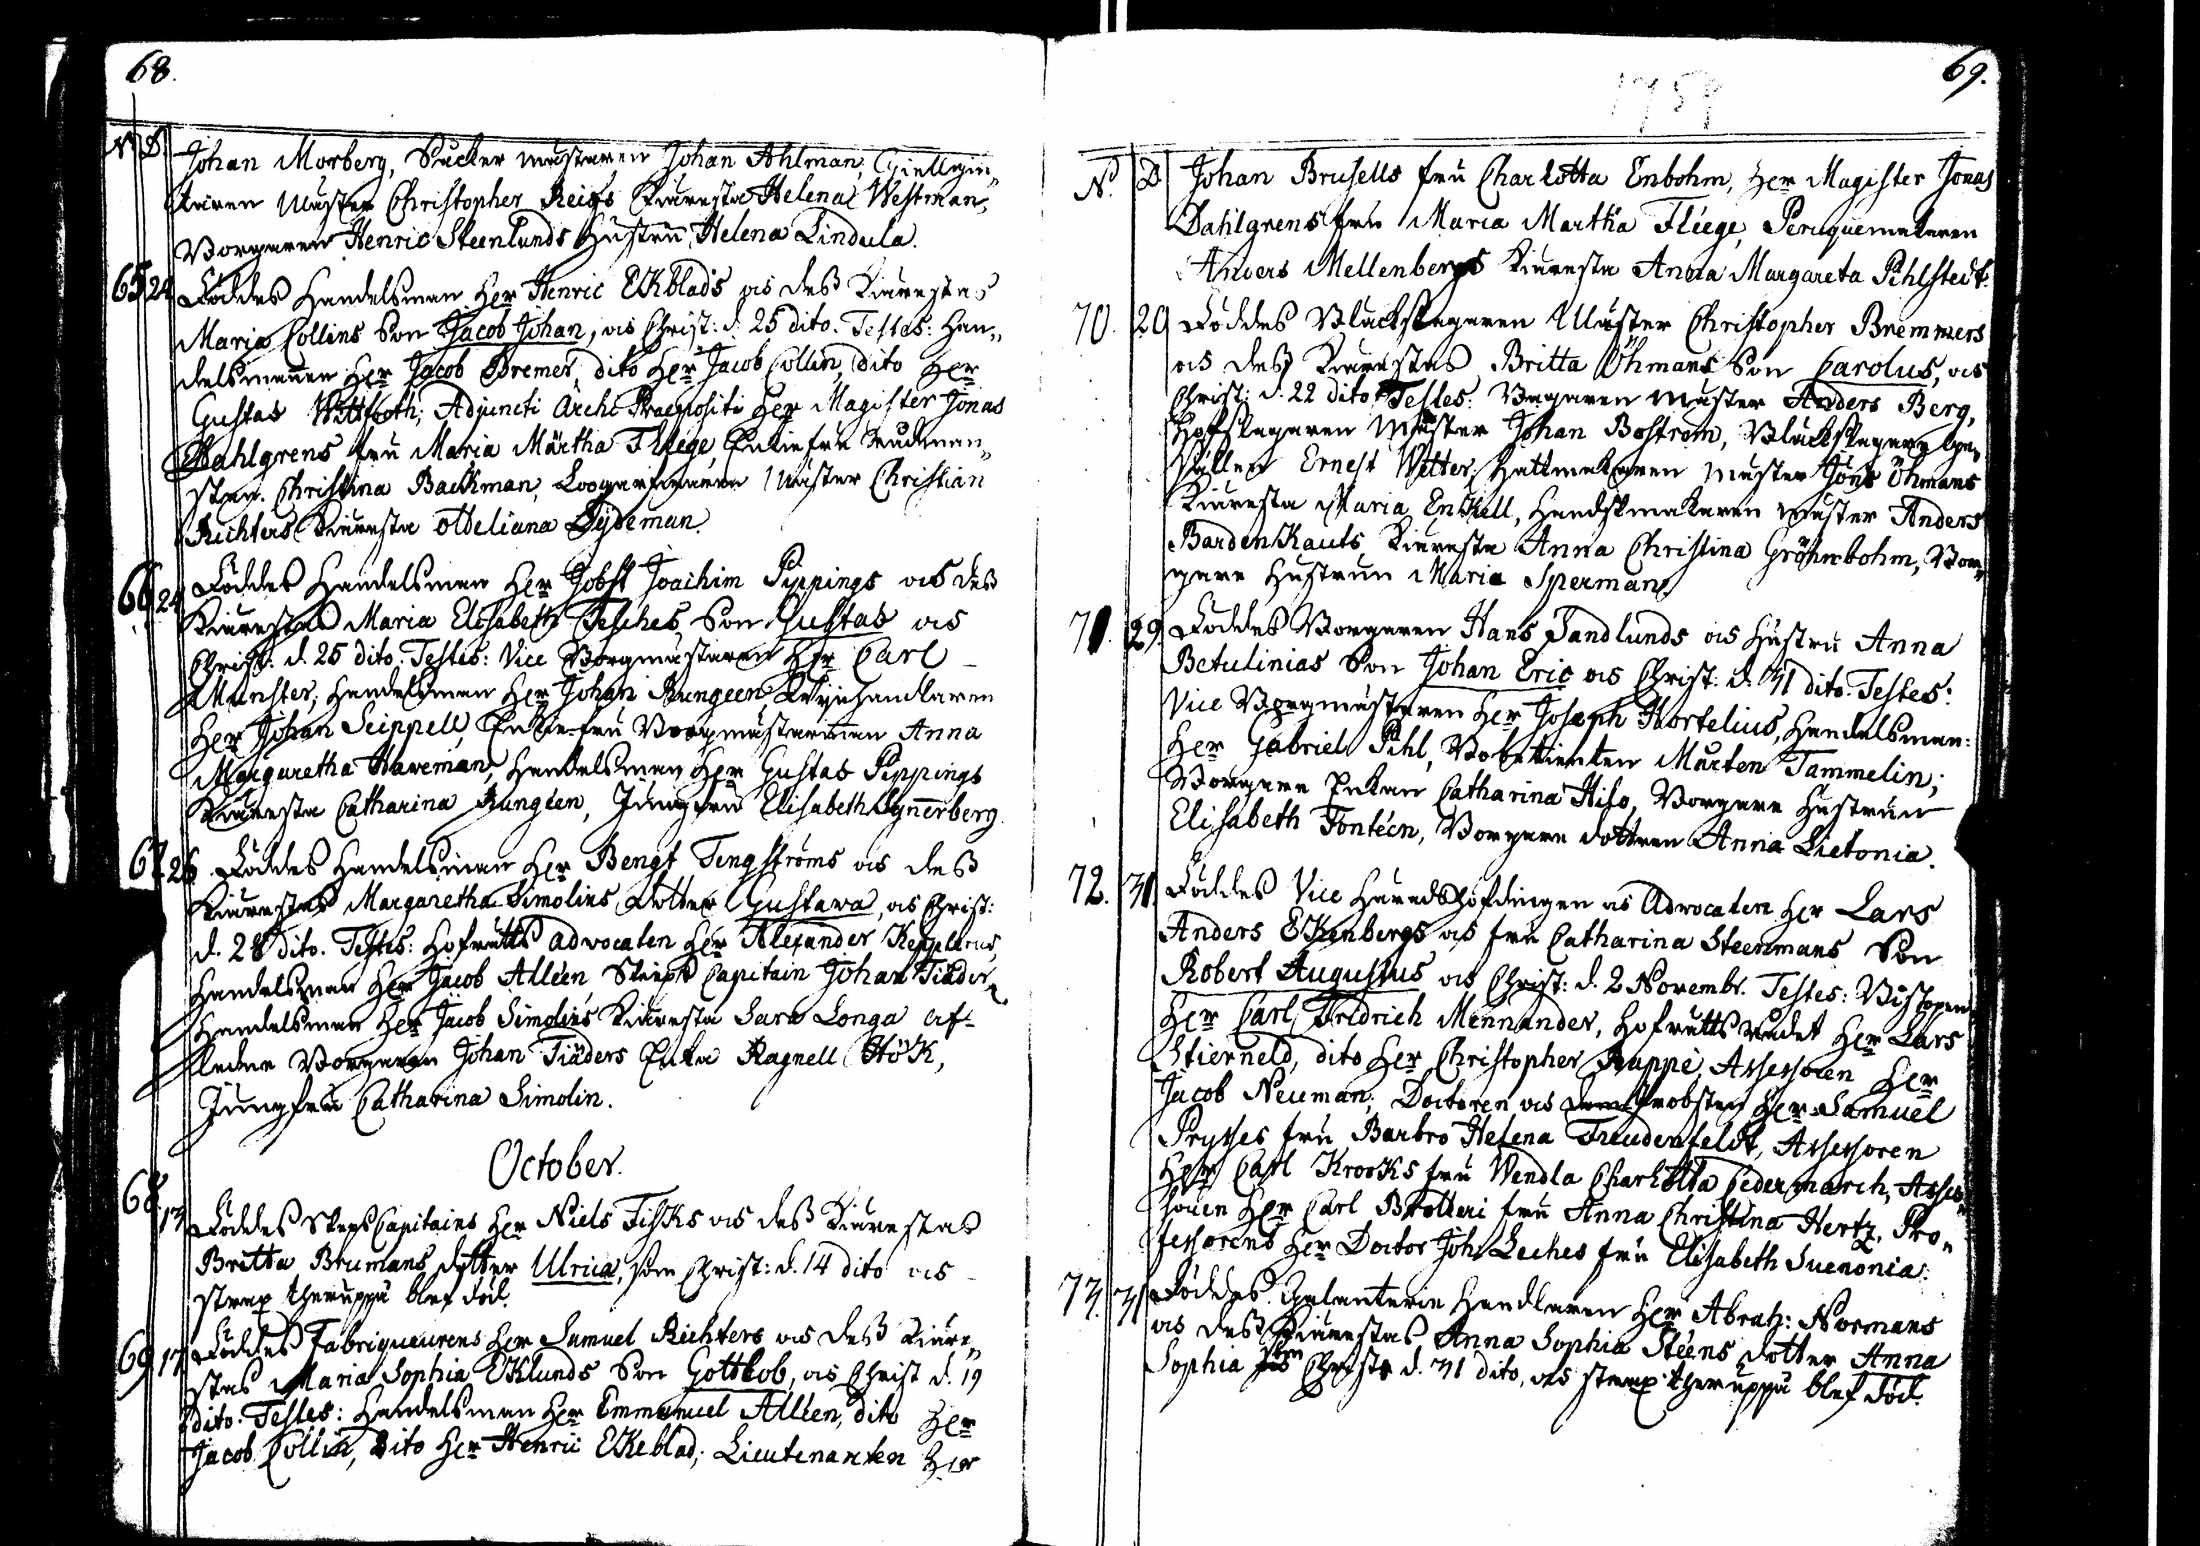 68.
N D
Johan Morberg, Såcker mästaren Johan Ahlman, Giellgiu„
taren Mäster Christopher Reiers Kiäresta Helena Westman,
Borgaren Henric Steenlunds Hustru Helena Lindula.
65 24 Föddes Handelsman Her Henric Ekblads ock dess Kiärestas
Maria Collins Son Jacob Johan, ock Christ: d. 25 dito. Testes: Han„
delsmannen Her Jacob Bremer, dito Her Jacob Collin, dito Her
Gustaf Wittfooth; Adjuncti Archi Praepositi Her Magister Jonas
Dahlgrens fru Maria Märtha Fliege, Enkiefru Rådman„
skan Christina Backman, Loogarfwaren Mäster Christian
Richters Kiäresta Adeliana Sydeman.
66 24 Föddes Handelsman Her Jobst Joachim Pippings ock dess
Kiärestas Maria Elisabeth Tesches, Son Gustaf ock
Christ: d. 25 dito. Testes: Vice Borgmästaren Her Carl
Munster, Handelsman Her Johan Rungeen, Krynhandlaren
Her Johan Seippell, Enkie-fru Borgmästarinnan Anna
Margaretha Haveman, Handelsman Her Gustaf Pippings
Kiäresta Catharina Rungéen, Jungfru Elisabeth Synnerberg.
67 26 Föddes Handelsman Her Bengt Tengströms ock dess
Kiärestas Margaretha Simolins Dotter Gustava, ock Christ:
d. 28 dito. Testes: Hofrätts Advocaten Her Alexander Kepplerus,
Handelsman Her Jacob Alléen, Skieps Capitain Johan Tiäder,
Handelsman Her Jacob Simolins Kiäresta Sara Longa, af-
ledne Borgaren Johan Tiäders Enka Ragnell Hök,
Jungfru Catharina Simolin.
October.
68 13 Föddes Skeps Capitains Her Niels Fisks ock dess Kiärestas
Britta Brumans Dotter Ulrica, som Christ: d. 14 dito ock
strax theruppå blef död.
69 17 Föddes Fabriqueurens Her Samuel Richters ock dess Kiäre„
stas Maria Sophia Eklunds Son Gottlob, ock Christ d. 19
dito. Testes: Handelsman Her Emmanuel Alléen, dito Her
Jacob Collin, Dito Her Henric Ekeblad, Lieutenanten Her
69.
1759
N. D
Johan Brusells fru Charlotta Enbohm, Her Magister Jonas
Dahlgrens fru Maria Martha Fliege, Peruquemakaren
Anders Mellenbergs Kiäresta Anna Margareta Pihlstedt.
70. 20 Föddes Blackslagaren Mäster Christopher Bremmers
ock dess Kiärestas Britta Öhmans Son Carolus, ock
Christ: d. 22 dito Testes: Bagaren Mäster Anders Berg,
Hofslagaren Mäster Johan Bostrom, Blackslagare Ge„
sällen Ernest Witter, Hattmakaren Mäster Jöns Öhmans
Kiäresta Maria Enkell, Handskmakaren Mäster Anders
Bardenkauts Kiäresta Anna Christina Gröhnbohm, Bor„
gare Hustrun Maria Sperman.
71. 29. Föddes Borgaren Hans Sandlunds ock Hustru Anna
Betulinias Son Johan Eric ock Christ: d. 31 dito. Testes:
Vice Borgmästaren Her Joseph Hortelius, Handelsman:
Her Gabriel Pihl, Bokettienten Mårten Tammelin;
Borgare Enkan Catharina Hilo, Borgare Hustrun
Elisabeth Fontéen, Borgare Dottren Anna Lietonia.
72. 31. Föddes Vice Häradshöfdingen ock Advocaten Her Lars
Anders Ekenbergs ock fru Catharina Steenmans Son
Robert Augustus ock Christ: d. 2 Novembr. Testes: Biskopen
Her Carl Fredrich Mennander, Hofrätts Rådet Her Lars
Stierneld, dito Her Christopher Rappe, Assessoren Her
Jacob Neuman; Doctoren ock Probsten Her Samuel
Pryttes fru Barbro Helena Freudenfeldt, Assessoren
Her Carl Krooks fru Wendla Charlotta Cedermarch, Asses„
soren Her Carl Brotteri fru Anna Christina Hertz, Pro„
fessorens Her Doctor Joh. Leches fru Elisabeth Suenonia.
73. 31 Föddes Galanterie Handlaren Her Abrah: Normans
ock dess Kiärestas Anna Sophia Stéens Dotter Anna
Sophia som Christ: d. 31 dito, ock strax theruppå blef död.